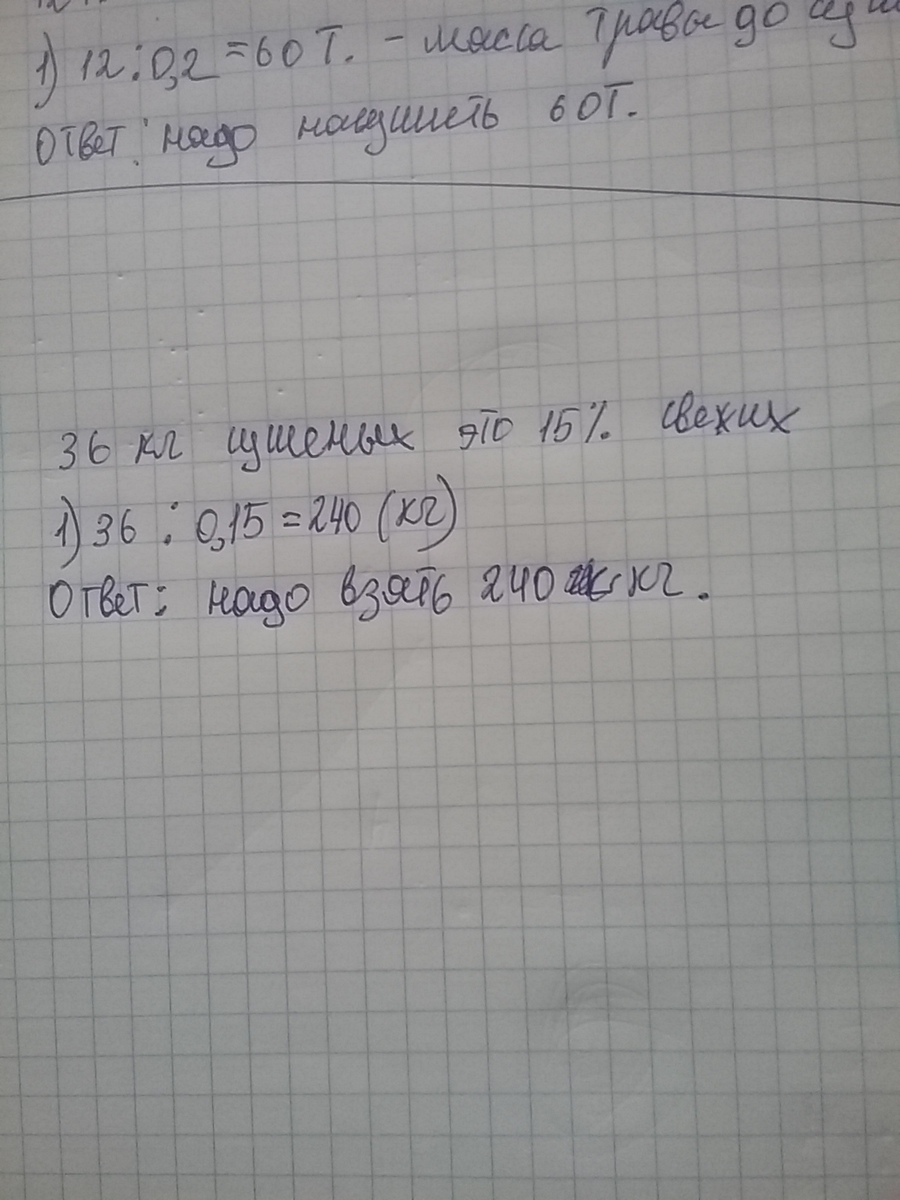 1) 12 : 0,2 = 60 Т. - масса травы до
Ответ: надо насушить 60Т.
36 кг сушеных это 15% свежих
1) 36 : 0,15 = 240 (кг)
Ответ: надо взять 240 кг.